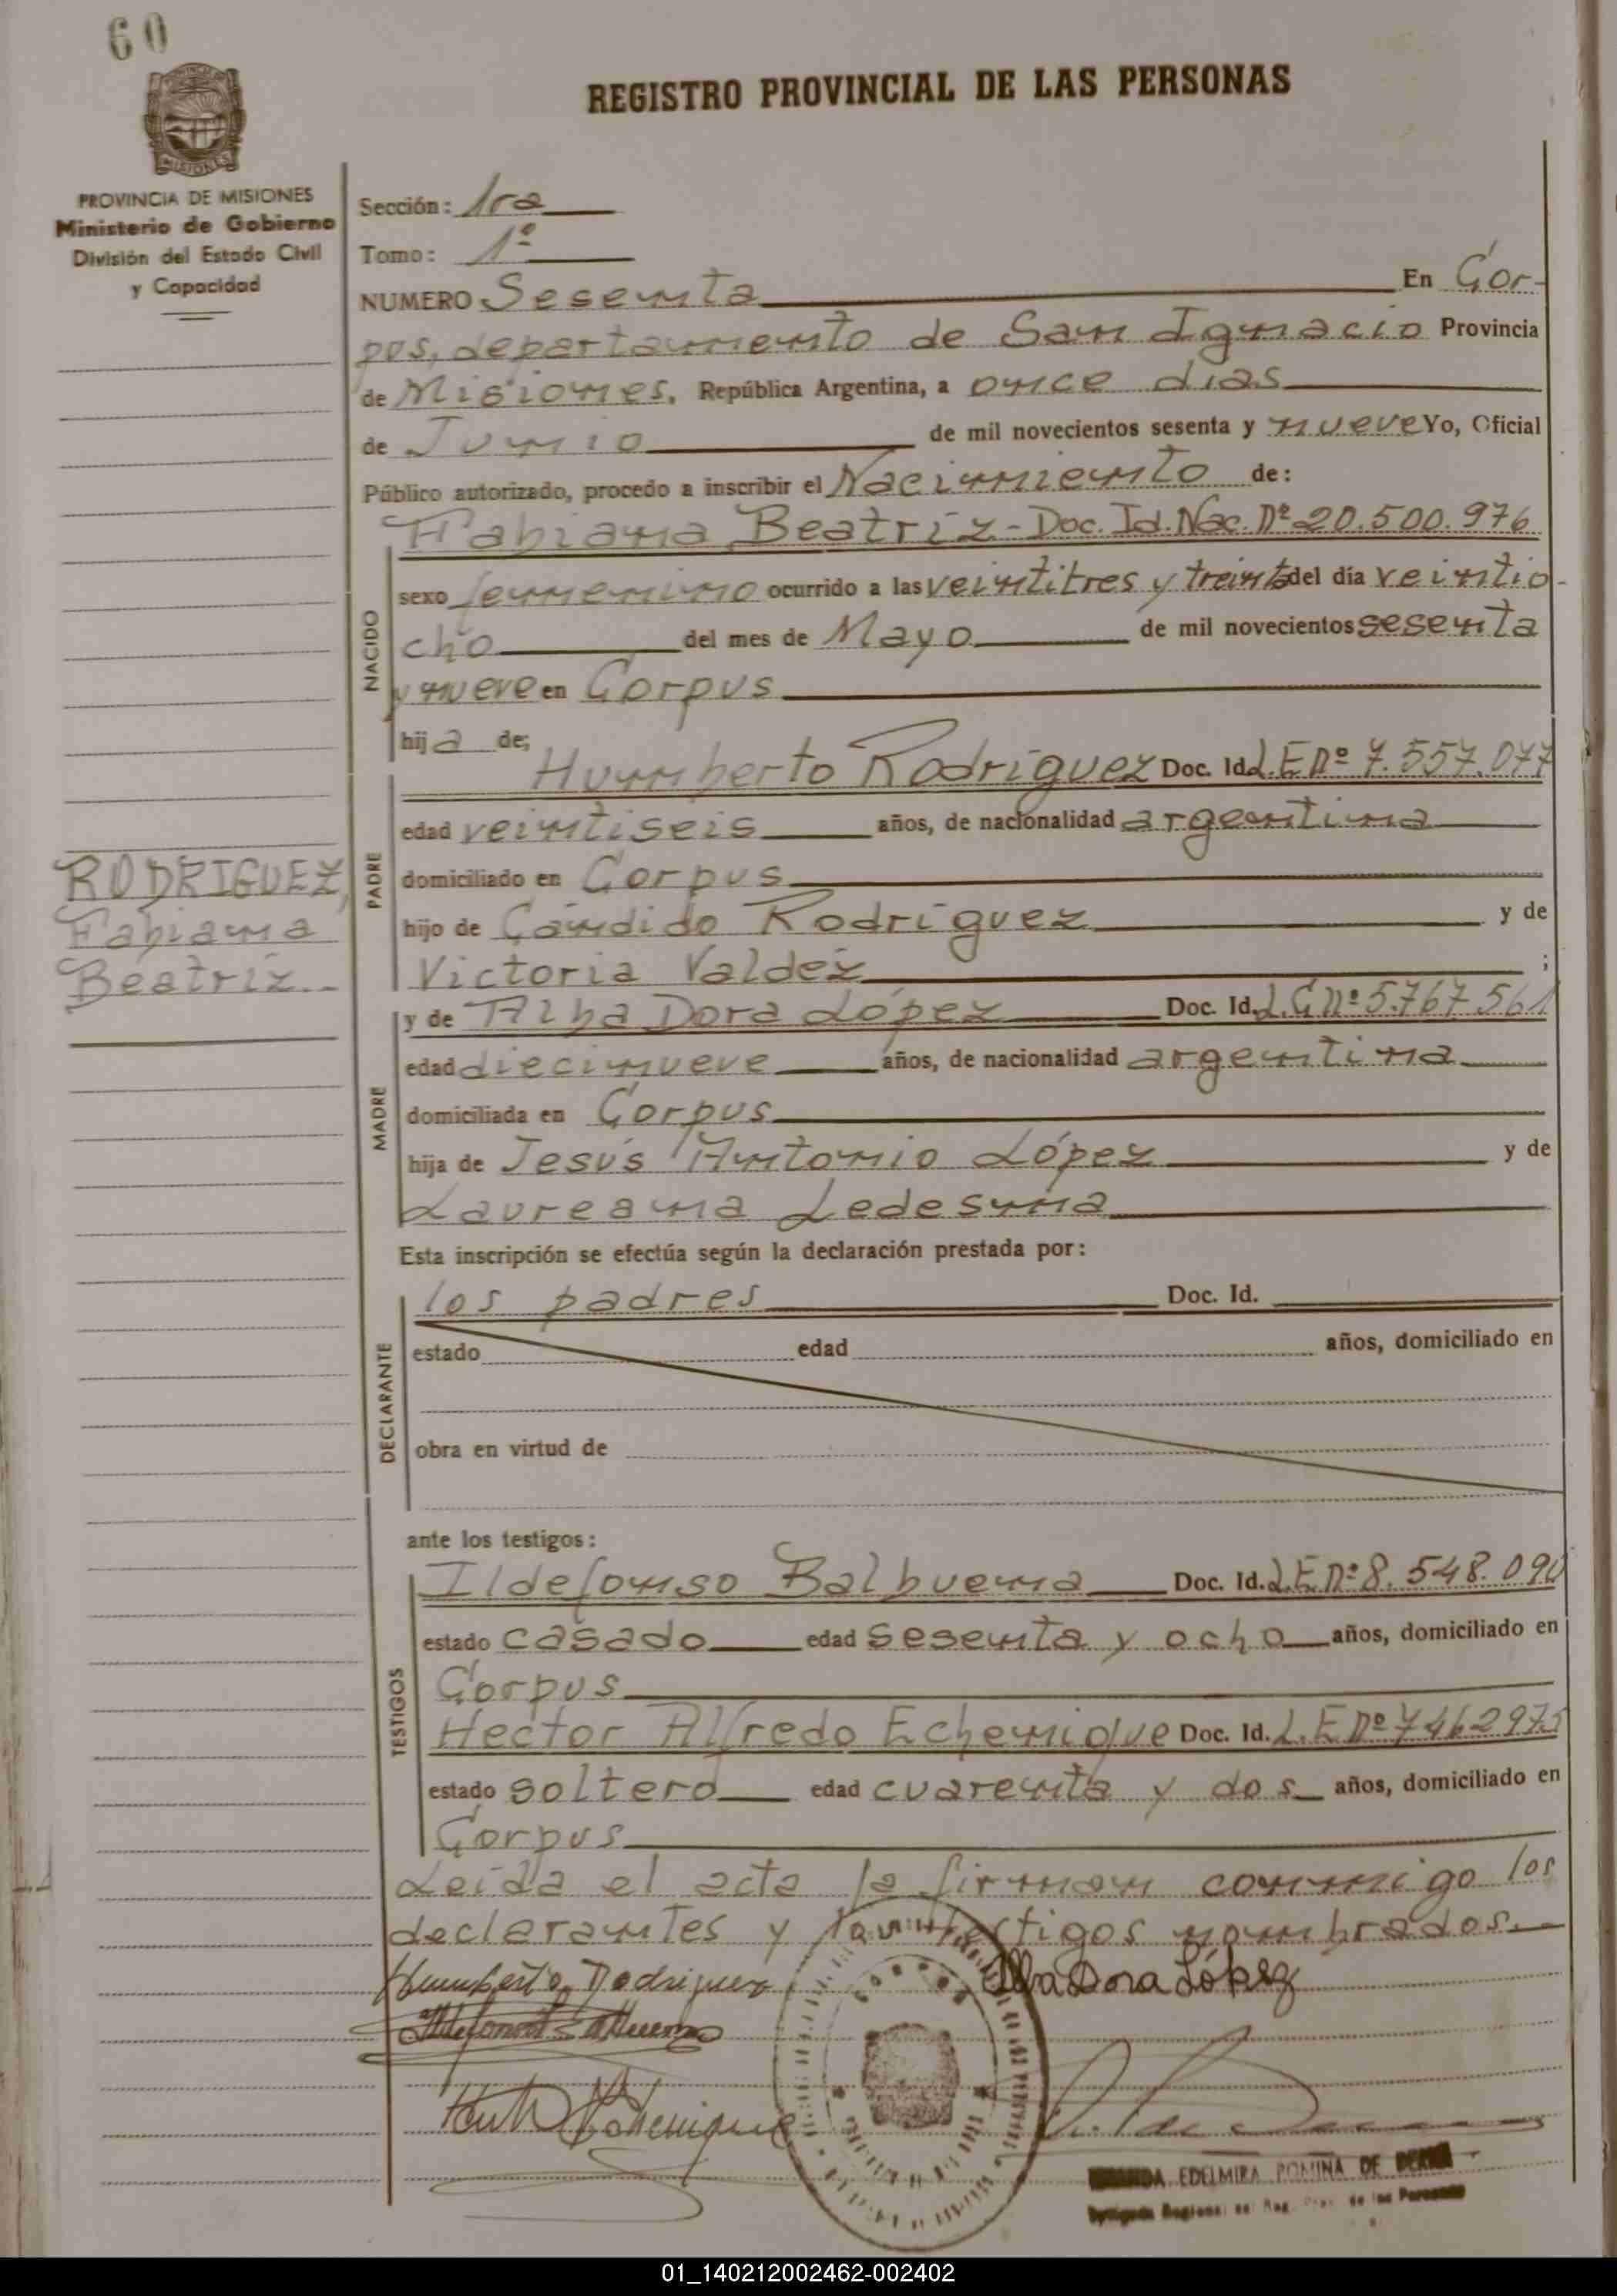 60
REGISTRO PROVINCIAL DE LAS PERSONAS
MISIONES
PROVINCIA DE MISIONES
Ministerio de Gobierno
División del Estado Civil
y Capacidad
Sección: 1ra
Tomo: 1º
NUMERO Sesenta En Cor-
pus, departamento de San Ignacio Provincia
de Misiones, República Argentina, a once dias
de Junio de mil novecientos sesenta y nueve Yo, Oficial
Público autorizado, procedo a inscribir el Nacimiento de:
Fabiana Beatríz - Doc. Id. Nac. Nº 20.500.976
NACIDO
sexo femenino ocurrido a las veintitres y treinta del día veintio-
cho del mes de Mayo de mil novecientos sesenta
y nueve en Corpus
hija de;
Humberto Rodríguez Doc. Id. L.E Nº 7.557.077
PADRE
edad veintiseis años, de nacionalidad argentina
domiciliado en Corpus
hijo de Cándido Rodríguez y de
Victoria Valdéz ;
RODRIGUEZ,
Fabiana
Beatríz.-
MADRE
y de Alba Dora López Doc. Id. L.C Nº 5.767.561
edad diecinueve años, de nacionalidad argentina
domiciliada en Corpus
hija de Jesús Antonio López y de
Laureana Ledesma
Esta inscripción se efectúa según la declaración prestada por:
DECLARANTE
los padres Doc. Id.
estado edad años, domiciliado en
obra en virtud de
ante los testigos:
TESTIGOS
Ildefonso Balbuena Doc. Id. L.E Nº 8.548.090
estado casado edad sesenta y ocho años, domiciliado en
Corpus
Hector Alfredo Echenique Doc. Id. L.E Nº 7462975
estado soltero edad cuarenta y dos años, domiciliado en
Corpus
Leída el acta la firman conmigo los
declarantes y testigos nombrados.-
Humberto Rodriguez Alba Dora López
Ildefonso Balbuena
Echenique
EDELMIRA ROMINA DE
01_140212002462-002402